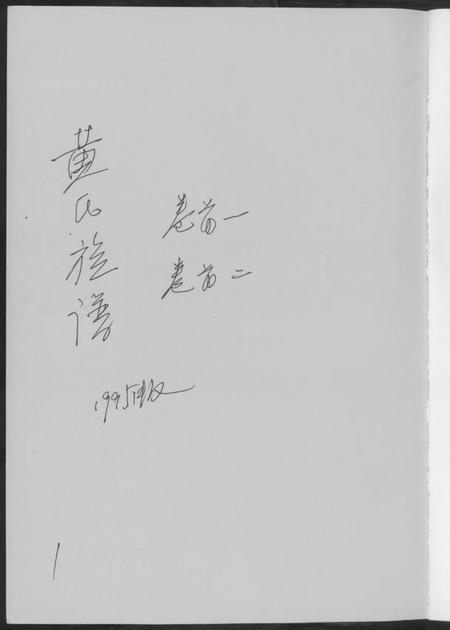 黄氏族谱
卷首一
卷首二
1995年版
1